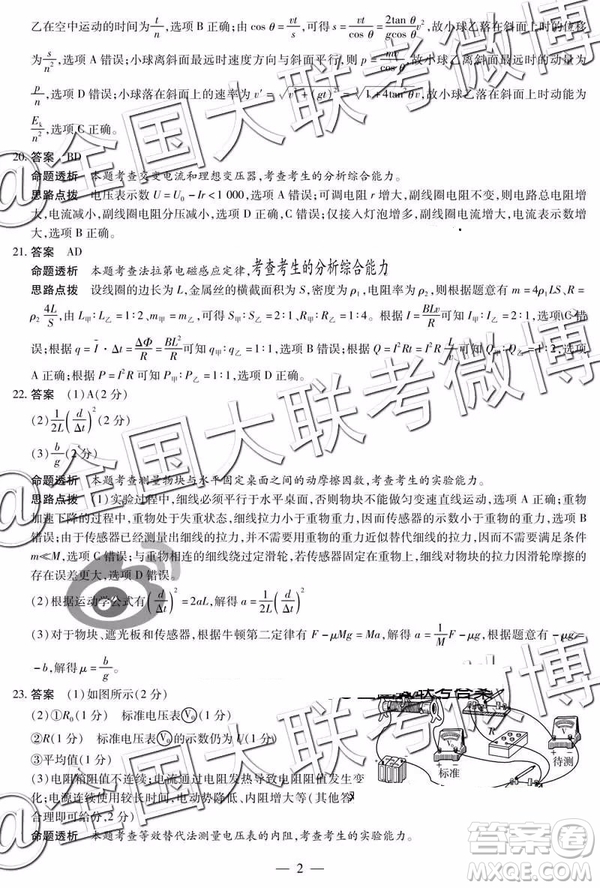 乙在空中运动的时间为t/n,选项B正确;由cos θ=vt/s,可得s=vt/cos θ=2tan θ/gcos θ v²,故小球乙落在斜面上时的位移
为s/n²,选项A错误;小球离斜面最远时速度方向与斜面平行,
故小球乙离斜面最远时的动量为
p/n,选项D错误;小球落在斜面上的速率为v′=√v²+(gt)²=√1+4tan²θ v,故小球乙落在斜面上时的动能为
Eₖ/n²,选项C正确。
20. 答案 BD
命题透析 本题考查交变电流和理想变压器,考查考生的分析综合能力。
思路点拨 电压表示数U=U₀-Ir<1 000,选项A错误;可调电阻r增大,副线圈电压不变,则副线圈回路总电阻增大,
电流减小,副线圈电阻分压减小,选项B正确,C错误;仅接入灯泡增多,副线圈总电阻减小,电流增大,电流表示数
增大,选项D正确。
21. 答案 AD
命题透析 本题考查法拉第电磁感应定律,考查考生的分析综合能力
思路点拨 设线圈的边长为L,金属丝的横截面积为S,密度为ρ₁,电阻率为ρ₂,则根据题意有m=4ρ₁LS、R=
ρ₂4L/S,由L甲:L乙=1:2,S甲:S乙=2:1,选项A正确;R甲:R乙=1:4,根据I=BLv/R可知I甲:I乙=2:1,选项C错
误;根据q=Ī·Δt=ΔΦ/R=BL²/R可知q甲:q乙=1:1,选项B错误;根据Q=I²Rt可知Q甲:Q乙=1:2,选项
D正确。
22. 答案 (1)A(2分)
(2)1/2L(d/Δt)²(2分)
(3)b/g(2分)
命题透析 本题考查测量物块与水平固定桌面之间的动摩擦因数,考查考生的实验能力。
思路点拨 (1)实验过程中,细线必须平行于水平桌面,选项A正确;本实验中,物块不能做匀变速直线运动,重物
加速下降的过程中,重物处于失重状态,细线拉力小于重物重力,因而传感器的示数小于重物的重力,选项B错
误;由于传感器能够显示细线的拉力,并不需要用重物的重力近似代替细线的拉力,因而不需要满足条件
m≪M,选项C错误;与重物相连的细线跨过定滑轮,并不影响传感器所在的细线对物块的拉力因滑轮摩擦的
存在误差更大,选项D错误。
(2)根据运动学公式有(d/Δt)²=2aL,解得a=1/2L(d/Δt)²。
(3)对于物块、遮光板和传感器,根据牛顿第二定律有F-μMg=Ma,可得a=1/M F-μg,根据题意有-μg=
-b,解得μ=b/g。
23. 答案 (1)如图所示(2分)
(2)①R₀(1分) 标准电压表V₀(1分)
②R(1分) 标准电压表V₀的示数仍为U(1分)
③平均值(1分)
(3)电阻箱阻值不连续;电流通过电阻发热导致电阻值发生变
化;电流连续使用较长时间,电动势降低,内阻增大等(其他答
合理即可给分,2分)
命题透析 本题考查等效替代法测量电压表的内阻,考查考生的实验能力。
R
标准
待测
— 2 —
@全国大联考微博
@全国大联考微博
@全国大联考微博
作业卷
MMZUOYE.COM